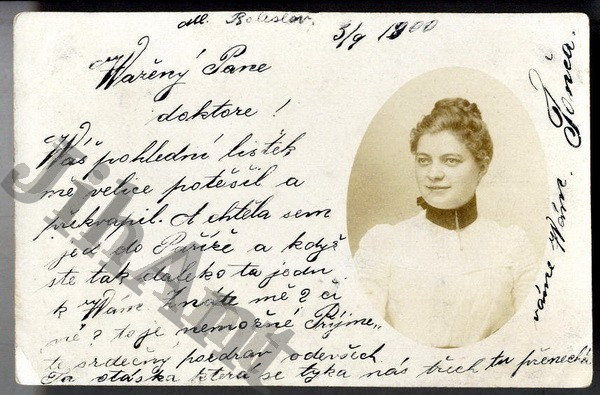 Ml. Boleslav. 3/9 1900
Wážený Pane
doktore!
Wáš pohlední lístek
mě velice potěšil a
překvapil. A chtěla sem
jed do Paříže a když
ste tak daleko ta jedu
k Wám znáte mě? či
ně? to je nemožné Prýme„
te srdečný pozdrav odevšich.
Ta otáska která se tyka nás třech tu přenechá
váme Wám. Tonča.